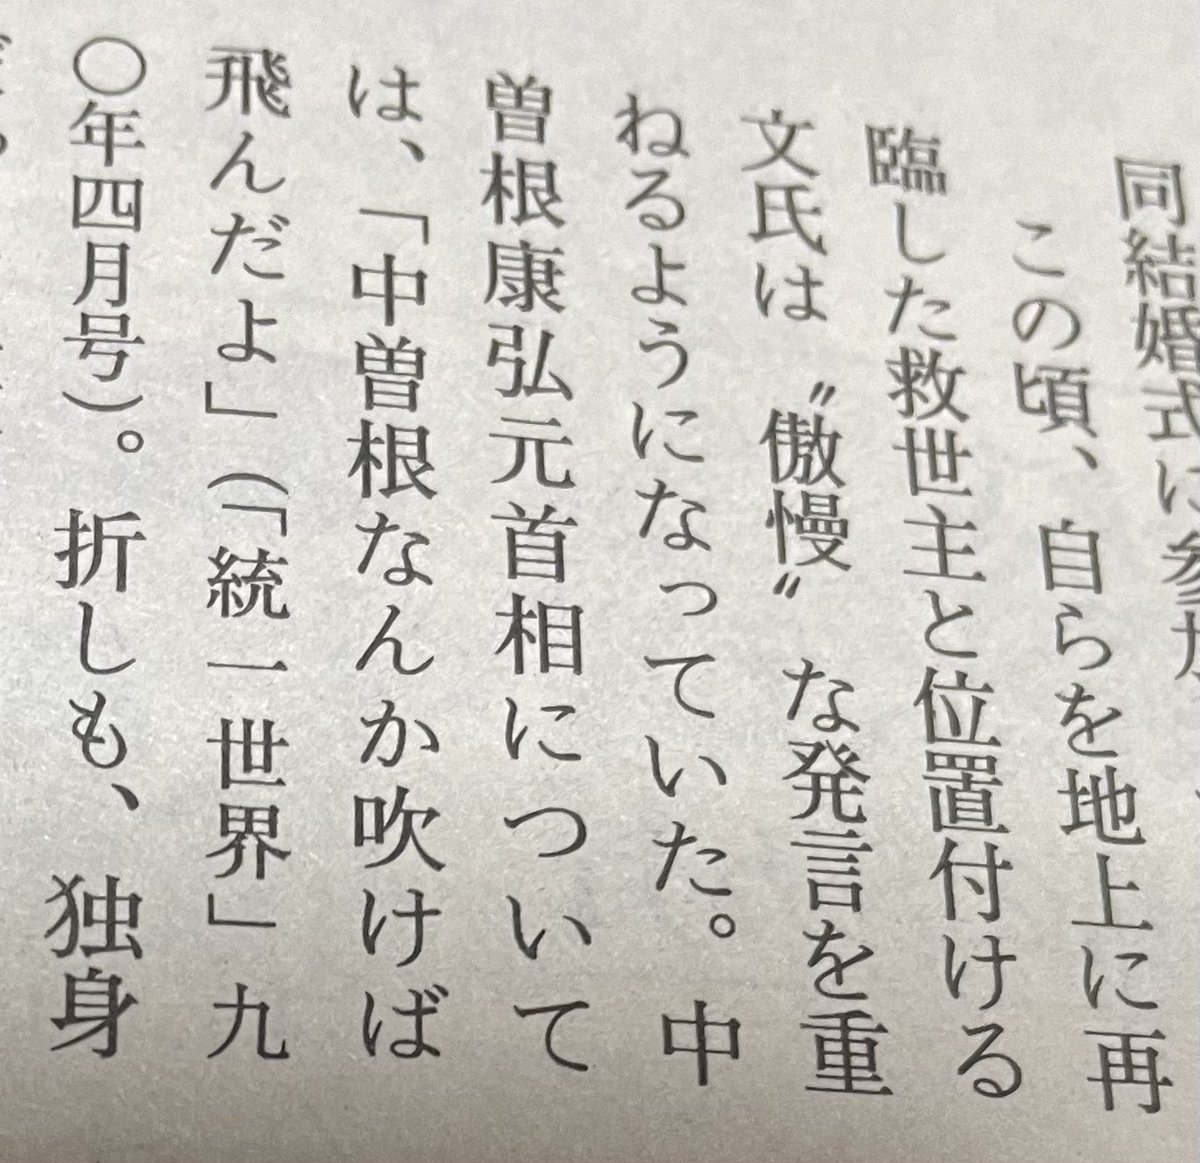 同結婚式に参加
この頃、自らを地上に再
臨した救世主と位置付ける
文氏は〝傲慢〟な発言を重
ねるようになっていた。中
曽根康弘元首相について
は、「中曽根なんか吹けば
飛んだよ」(「統一世界」九
〇年四月号)。折しも、独身